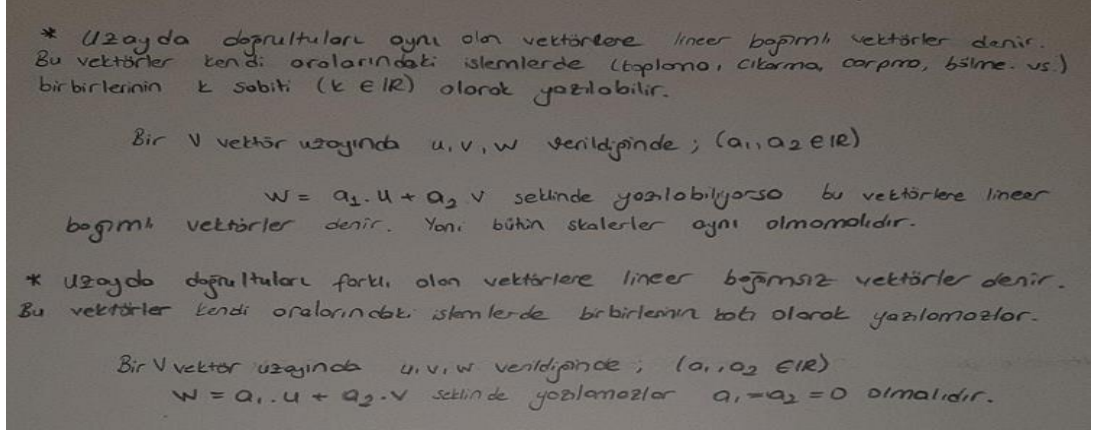 * Uzayda doğrultuları aynı olan vektörlere lineer bağımlı vektörler denir.
Bu vektörler kendi aralarındaki işlemlerde (toplama, cıkarma, carpma, bölme. vs.)
birbirlerinin k sabiti (k ∈ IR) olarak yazılabilir.
Bir V vektör uzayında u, v, w verildiğinde ; (a₁, a₂ ∈ IR)
w = a₁. u + a₂ v seklinde yazılabiliyorsa bu vektörlere lineer
bağımlı vektörler denir. Yani bütün skalerler aynı olmamalıdır.
* Uzayda doğrultuları farklı olan vektörlere lineer bağımsız vektörler denir.
Bu vektörler kendi aralarındaki islemlerde birbirlerinin katı olarak yazılamazlar.
Bir V vektör uzayında u, v, w verildiğinde ; (a₁, a₂ ∈ IR)
w = a₁. u + a₂. v seklinde yazılamazlar a₁ = a₂ = 0 olmalıdır.